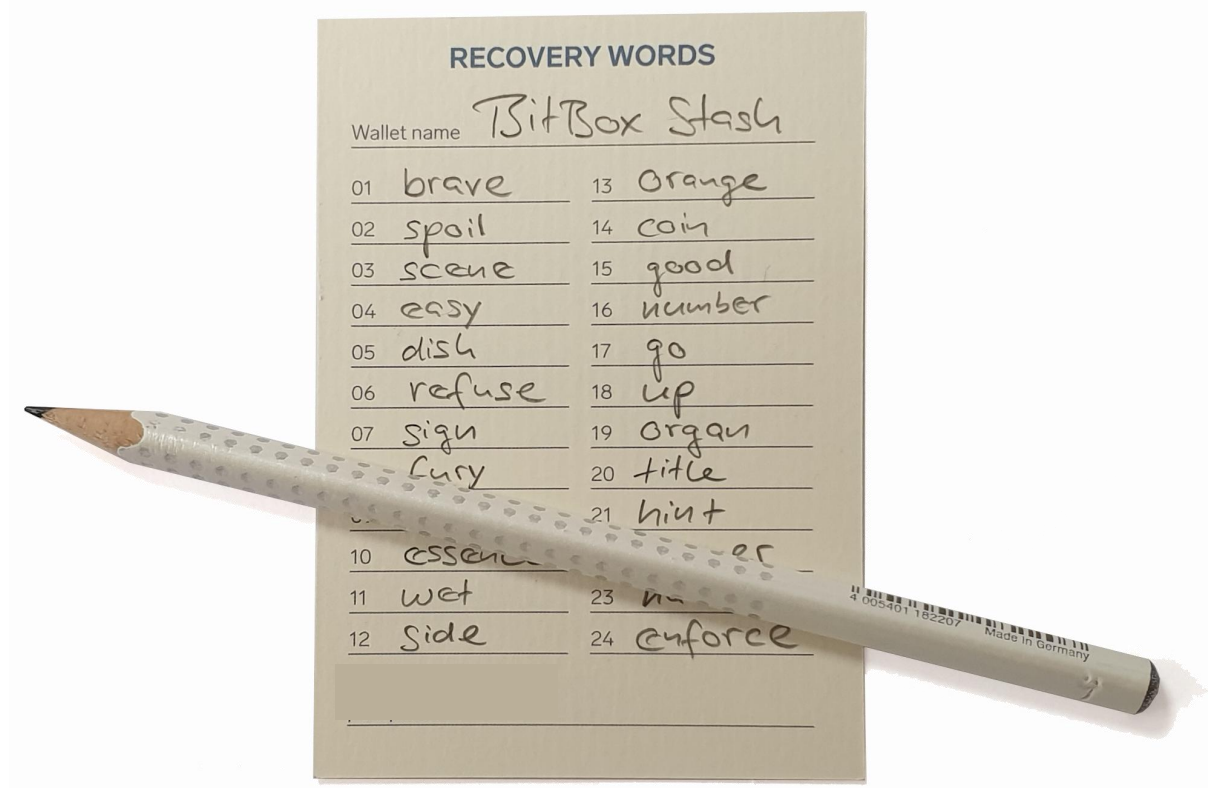 RECOVERY WORDS
Wallet name BitBox Stash
01 brave
02 spoil
03 scene
04 easy
05 dish
06 refuse
07 sign
fury
10
11 wet
12 side
13 orange
14 coin
15 good
16 number
17 go
18 up
19 organ
20 title
21 hint
23
24 enforce
4 005401 182207 Made in Germany